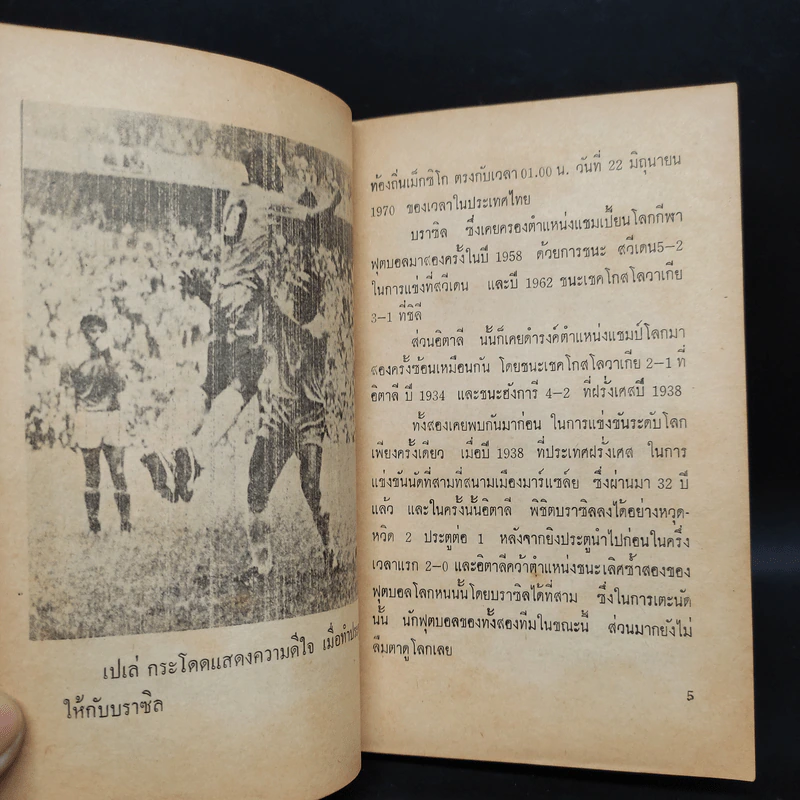 เปเล่ กระโดดแสดงความดีใจ เมื่อทำประ
ให้กับบราซิล
ท้องถิ่นเม็กซิโก ตรงกับเวลา 01.00 น. วันที่ 22 มิถุนายน
1970 ของเวลาในประเทศไทย
บราซิล ซึ่งเคยครองตำแหน่งแชมเปี้ยนโลกกีฬา
ฟุตบอลมาสองครั้งในปี 1958 ด้วยการชนะ สวีเดน5-2
ในการแข่งที่สวีเดน และปี 1962 ชนะเชคโกสโลวาเกีย
3-1 ที่ชิลี
ส่วนอิตาลี นั้นก็เคยดำรงค์ตำแหน่งแชมป์โลกมา
สองครั้งซ้อนเหมือนกัน โดยชนะเชคโกสโลวาเกีย 2-1 ที่
อิตาลี ปี 1934 และชนะฮังการี 4-2 ที่ฝรั่งเศสปี 1938
ทั้งสองเคยพบกันมาก่อน ในการแข่งขันระดับโลก
เพียงครั้งเดียว เมื่อปี 1938 ที่ประเทศฝรั่งเศส ในการ
แข่งขันนัดที่สามที่สนามเมืองมาร์แซล์ย ซึ่งผ่านมา 32 ปี
แล้ว และในครั้งนั้นอิตาลี พิชิตบราซิลลงได้อย่างหวุด-
หวิด 2 ประตูต่อ 1 หลังจากยิงประตูนำไปก่อนในครึ่ง
เวลาแรก 2-0 และอิตาลีคว้าตำแหน่งชนะเลิศซ้ำสองของ
ฟุตบอลโลกหนนั้นโดยบราซิลได้ที่สาม ซึ่งในการเตะนัด
นั้น นักฟุตบอลของทั้งสองทีมในขณะนี้ ส่วนมากยังไม่
ลืมตาดูโลกเลย
5